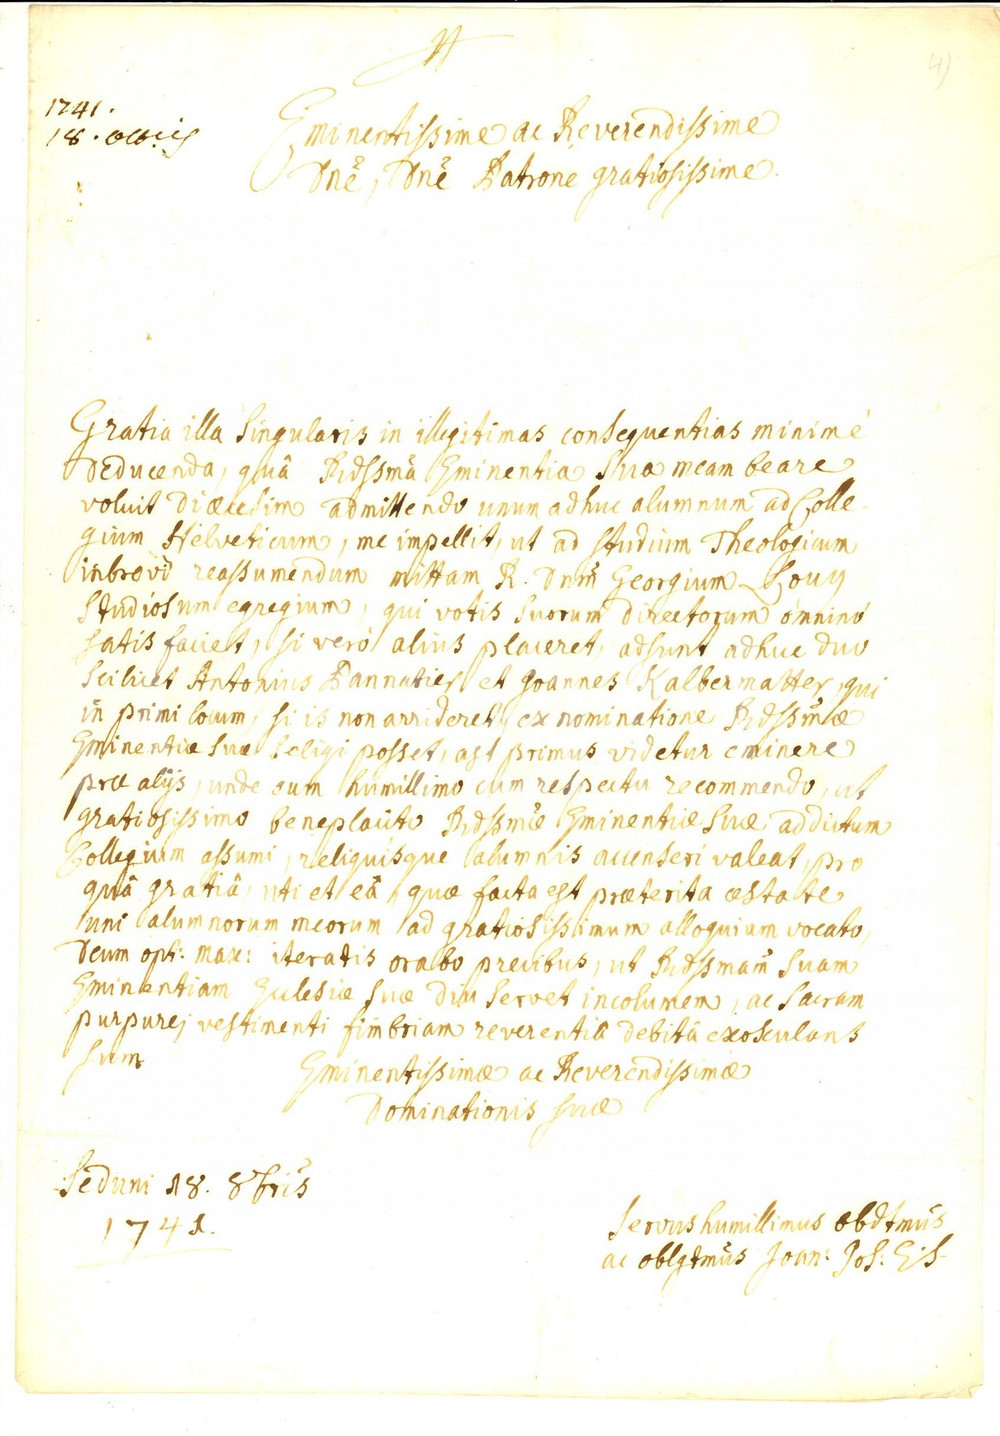 4)
1741.
18. octobris
Eminentissime ac Reverendissime
Dnē, Dnē Patrone gratiosissime.
Gratia illa singularis in illegitimas consequentias minimè
deducenda, quâ Rdssmā Eminentia Sua meam beare
voluit Diœcesim admittendo unum adhuc alumnum ad Colle-
gium Helveticum, me impellit, ut ad studium Theologicum
inbrevi reassumendum mittam R. Dnm̄ Georgium Lovy
studiosum egregium, qui votis suorum directorum omninò
satis faciet, si verò alius placeret, adsunt adhuc duo
scilicet Antonius Pannatier et Joannes Kalbermatter, qui
in primi locum, si is non arrideret, ex nominatione Rdssmæ
Eminentiæ Suæ seligi posset, ast primus videtur eminere
præ alijs, unde eum humillimo cum respectu recommendo, ut
gratiosissimo beneplacito Rdssmæ Eminentiæ Suæ addictum
Collegium assumi, reliquisque alumnis accenseri valeat, pro
quâ gratiâ, uti et eâ, quæ facta est præterita æstate
uni alumnorum meorum ad gratiosissimum alloquium vocato,
Deum opt: max: iteratis orabo precibus, ut Rdssmam Suam
Eminentiam Eclesiæ suæ diu servet incolumem, ac sacram
purpurej vestimenti fimbriam reverentiâ debitâ exosculans
sum
Eminentissimæ ac Reverendissimæ
Dominationis suæ
Seduni 18. 8bris
1741.
Servus humillimus obdtmus
ac oblgtmus Joan: Jos: E: S.